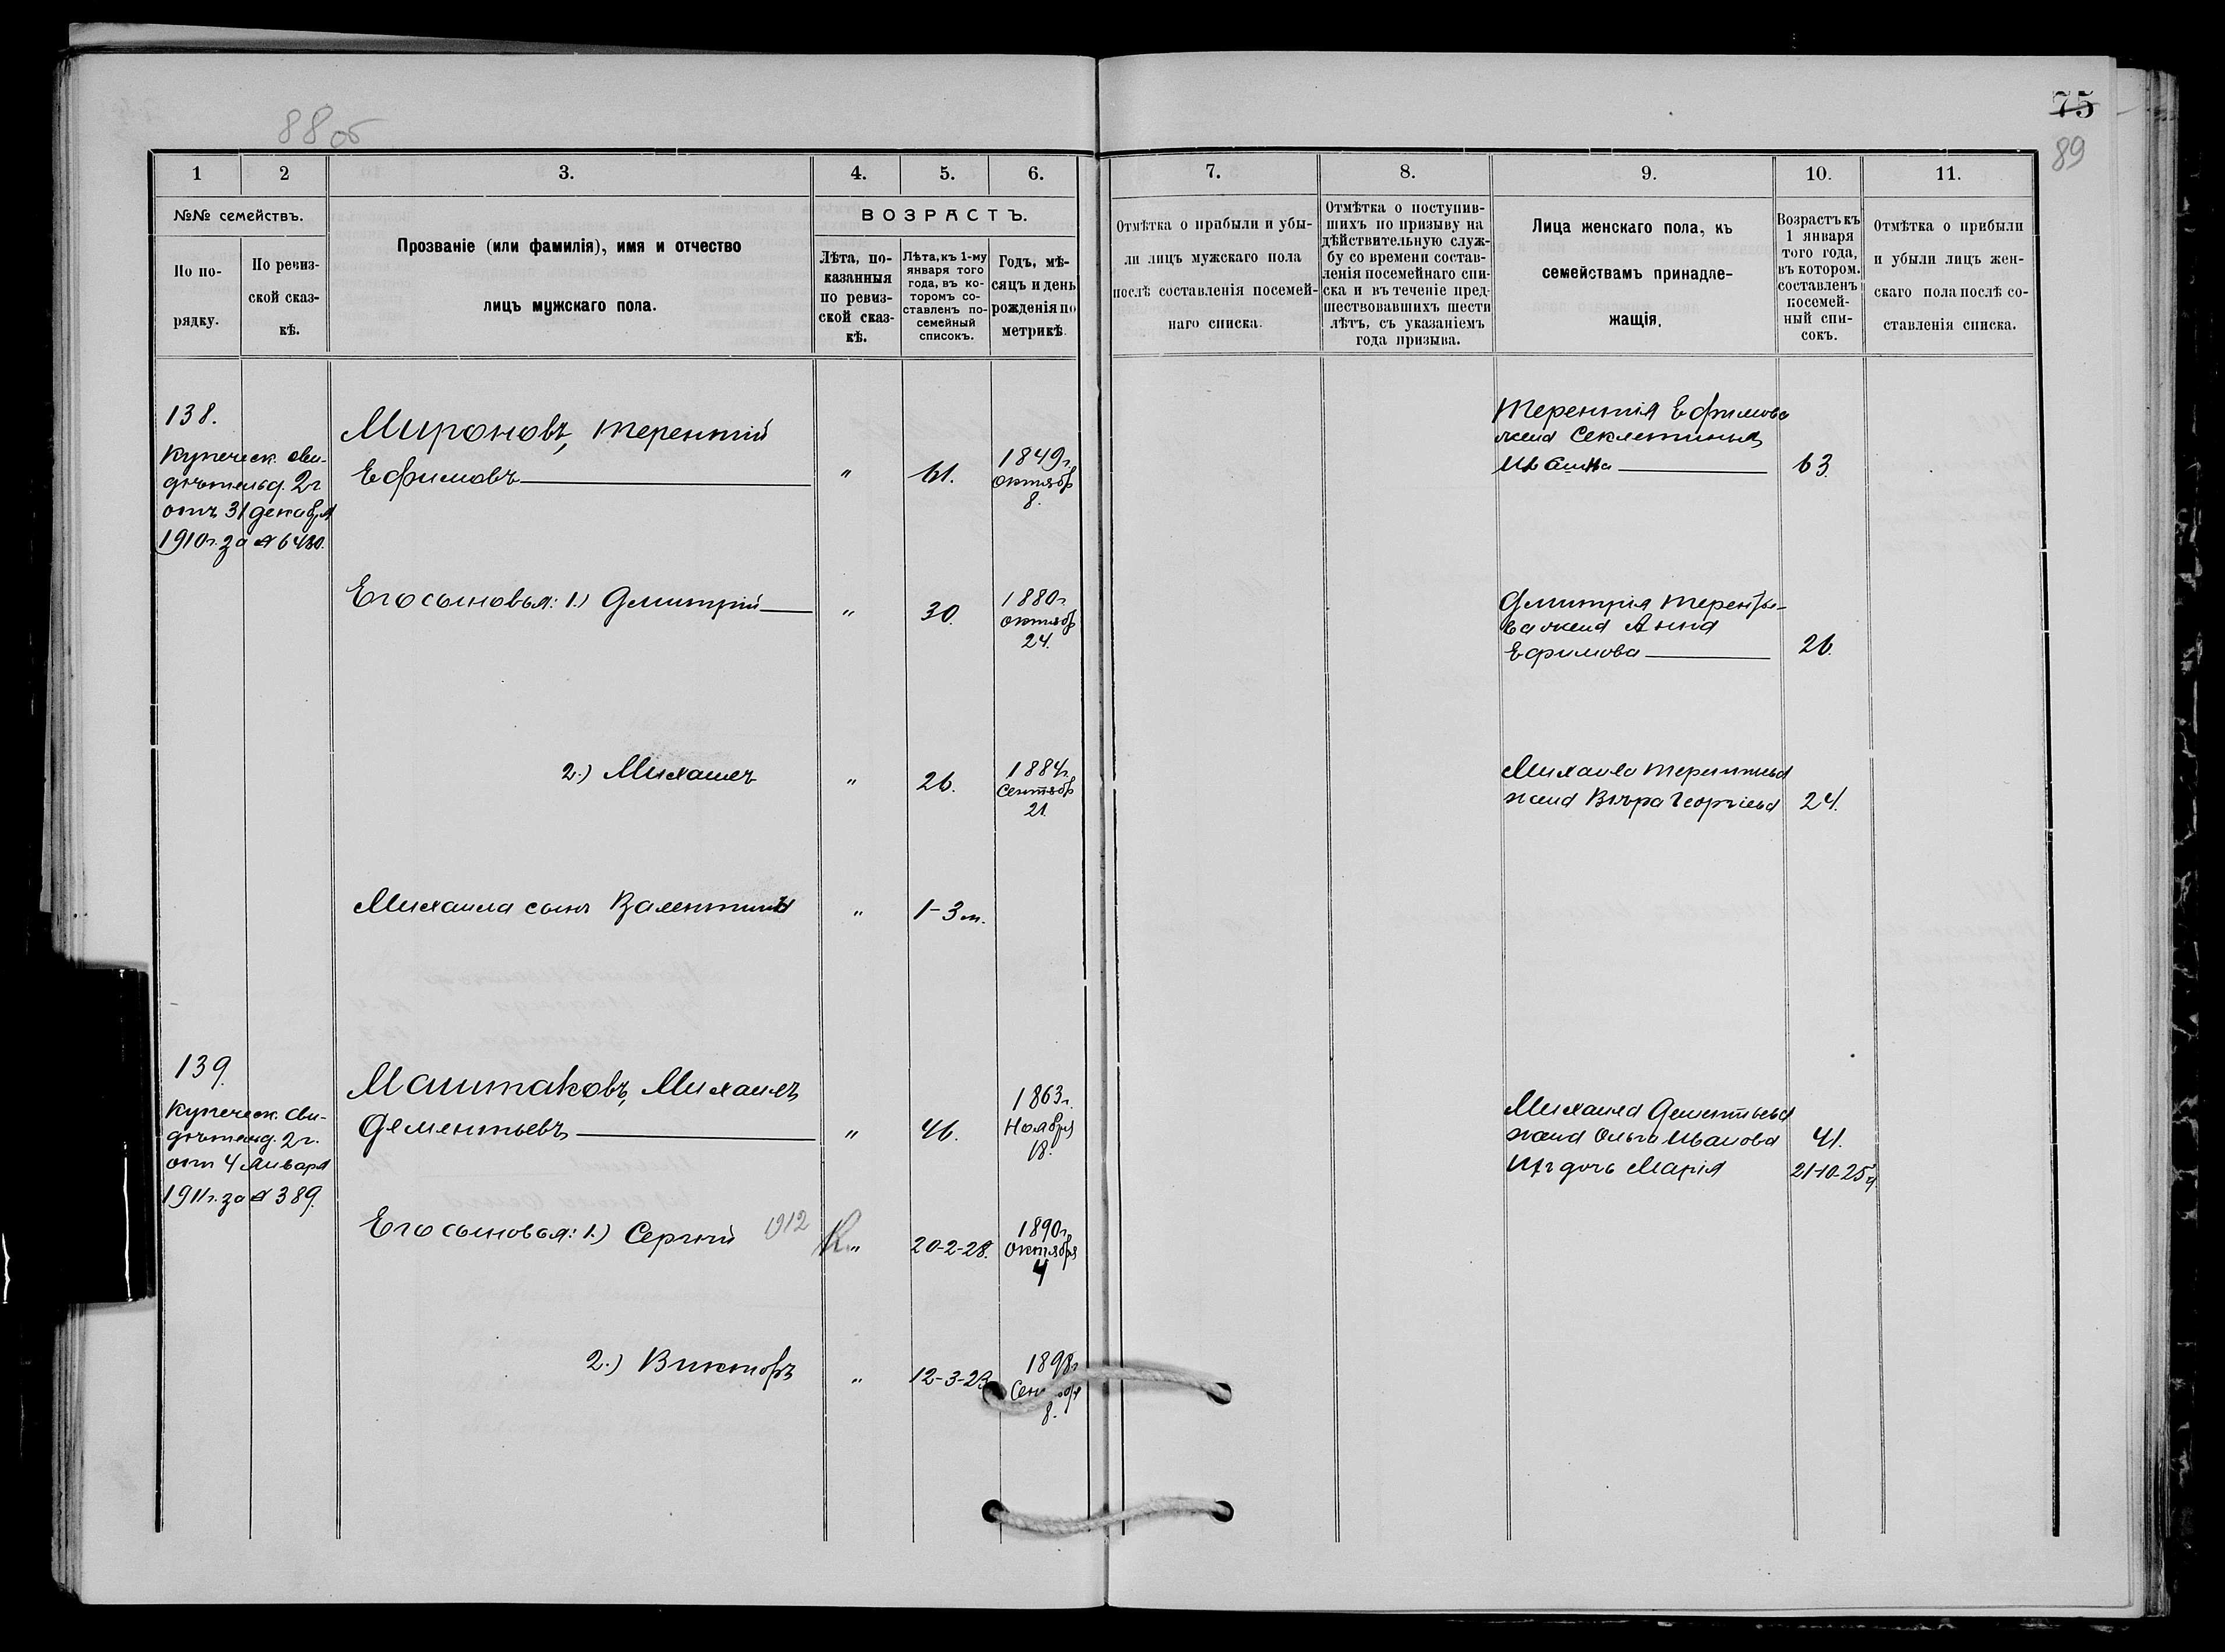 88 об
75
89
1
2
3.
4.
5.
6.
7.
8.
9.
10.
11.
№№ семействъ.
По по-
рядку.
По ревиз-
ской сказ-
кѣ.
Прозваніе (или фамилія), имя и отчество
лицъ мужскаго пола.
ВОЗРАСТЪ.
Лѣта, по-
казанныя
по ревиз-
ской сказ-
кѣ.
Лѣта, къ 1-му
января того
года, въ ко-
торомъ со-
ставленъ по-
семейный
списокъ.
Годъ, мѣ-
сяцъ и день
рожденія по
метрикѣ.
Отмѣтка о прибыли и убы-
ли лицъ мужскаго пола
послѣ составленія посемей-
наго списка.
Отмѣтка о поступив-
шихъ по призыву на
дѣйствительную служ-
бу со времени состав-
ленія посемейнаго спи-
ска и въ теченіе пред-
шествовавшихъ шести
лѣтъ, съ указаніемъ
года призыва.
Лица женскаго пола, къ
семействамъ принадле-
жащія.
Возрастъ къ
1 января
того года,
въ котором.
составленъ
посемей-
ный спи-
сокъ.
Отмѣтка о прибыли
и убыли лицъ жен-
скаго пола послѣ со-
ставленія списка.
138.
Купеческ. сви-
дѣтельд. 2 г
отъ 31 декабря
1910 г. за № 6430.
Мироновъ, Терентій
Ефимовъ
"
61.
1849 г.
Октябр
8.
Терентія Ефимова
жена Секлетинья
Ивана
63.
Его сыновья: 1.) Дмитрій
"
30.
1880 г
Октябр
24.
Дмитрія Терентье-
ва жена Анна
Ефимова
26.
2.) Михаилъ
"
26.
1884 г.
Сентябр
21.
Михаила Терентьева
жена Вѣра Георгіева
24.
Михаила сынъ Валентинъ
"
1-3 м.
139.
Купеческ. сви-
дѣтельд. 2 г.
отъ 4 Января
1911 г. за № 389.
Маштаковъ, Михаилъ
Дементьевъ
"
46.
1863 г.
Ноября
18.
Михаила Дементьева
жена Ольга Иванова
41.
Ихъ дочь Марія
21-10-25 д.
Его сыновья: 1.) Сергѣй
1912
"
20-2-28.
1890 г.
Октября
4
2.) Викторъ
"
12-3-23
1898 г
Сентября
8.